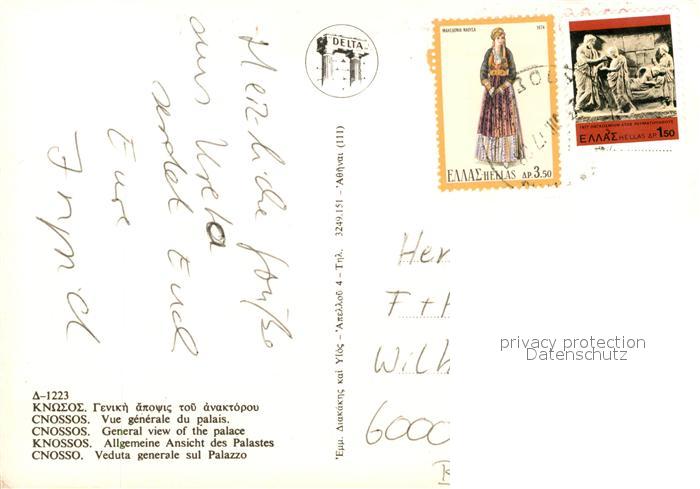 DELTA
Herzliche Grüße
aus Kreta
sendet Euch
Eure
Δ–1223
ΚΝΩΣΟΣ. Γενικὴ ἄποψις τοῦ ἀνακτόρου
CNOSSOS. Vue générale du palais.
CNOSSOS. General view of the palace
KNOSSOS. Allgemeine Ansicht des Palastes
CNOSSO. Veduta generale sul Palazzo
Ἐμμ. Διακάκης καὶ Υἱὸς – Ἀπελλοῦ 4 – Τηλ. 3249.151 – Ἀθῆναι (111)
ΜΑΚΕΔΟΝΙΑ ΝΑΟΥΣΑ 1974
ΕΛΛΑΣ HELLAS ΔΡ. 3.50
ΕΛΛΑΣ HELLAS ΔΡ. 1.50
Her
F + H
Wilh
6000
privacy protection
Datenschutz